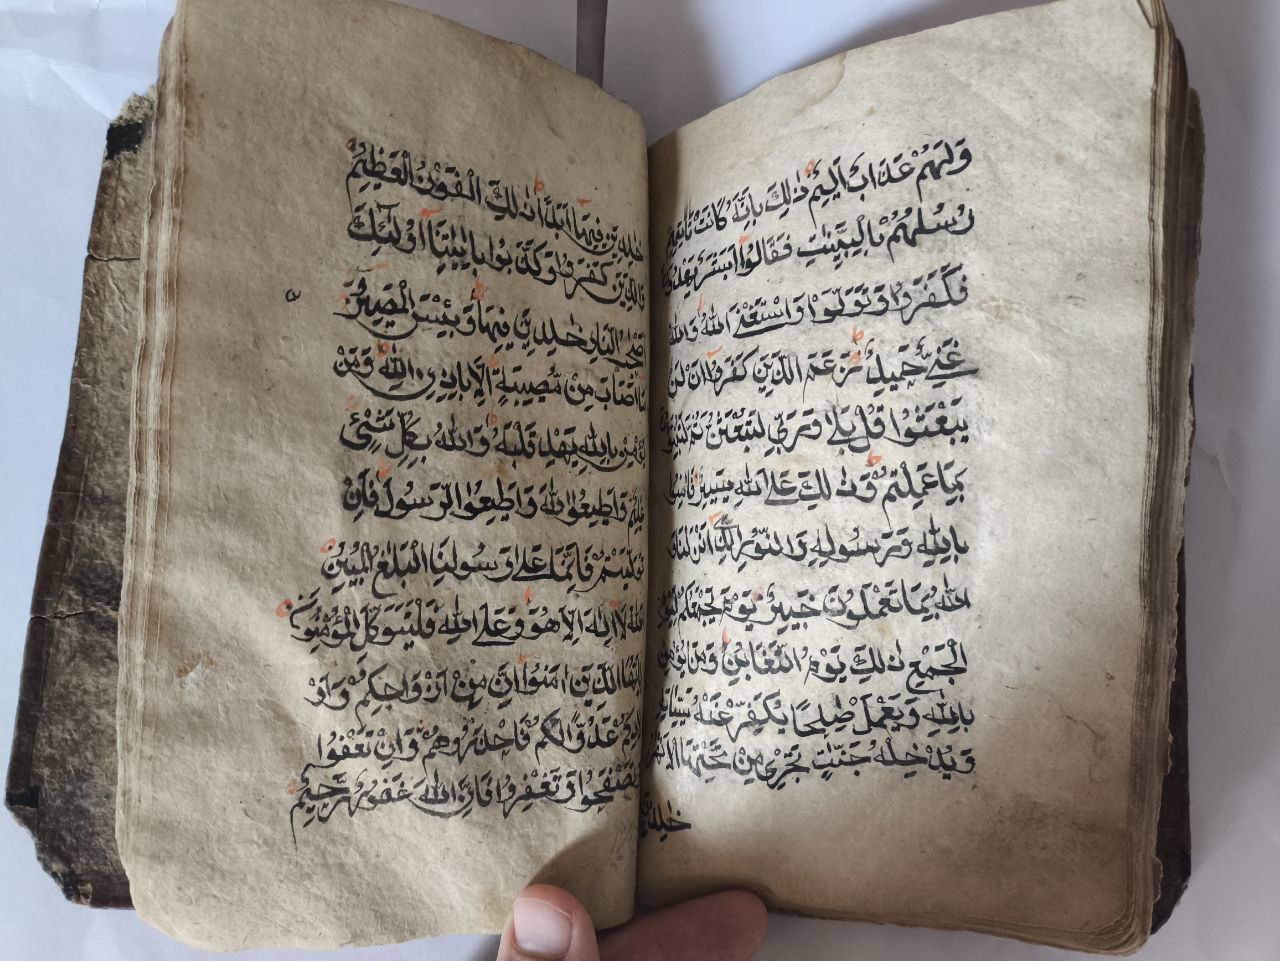 وَلَهُمْ عَذَابٌ أَلِيْمٌ ذٰلِكَ بِاَنَّهٗ كَانَتْ تَاْتِيْهِمْ
رُسُلُهُمْ بِالْبَيِّنٰتِ فَقَالُوْا اَبَشَرٌ يَهْدُوْنَنَا
فَكَفَرُوْا وَتَوَلَّوْا وَاسْتَغْنَى اللّٰهُ وَاللّٰهُ
غَنِيٌّ حَمِيْدٌ زَعَمَ الَّذِيْنَ كَفَرُوْا اَنْ لَنْ
يُبْعَثُوْا قُلْ بَلٰى وَرَبِّيْ لَتُبْعَثُنَّ ثُمَّ لَتُنَبَّؤُنَّ
بِمَا عَمِلْتُمْ وَذٰلِكَ عَلَى اللّٰهِ يَسِيْرٌ فَاٰمِنُوْا
بِاللّٰهِ وَرَسُوْلِهٖ وَالنُّوْرِ الَّذِيْ اَنْزَلْنَا وَ
اللّٰهُ بِمَا تَعْمَلُوْنَ خَبِيْرٌ يَوْمَ يَجْمَعُكُمْ لِيَوْمِ
الْجَمْعِ ذٰلِكَ يَوْمُ التَّغَابُنِ وَمَنْ يُؤْمِنْ
بِاللّٰهِ وَيَعْمَلْ صٰلِحًا يُكَفِّرْ عَنْهُ سَيِّئَاتِهٖ
وَيُدْخِلْهُ جَنّٰتٍ تَجْرِيْ مِنْ تَحْتِهَا الْاَنْهٰرُ
خٰلِدِيْنَ
خٰلِدِيْنَ فِيْهَا اَبَدًا ذٰلِكَ الْفَوْزُ الْعَظِيْمُ
وَالَّذِيْنَ كَفَرُوْا وَكَذَّبُوْا بِاٰيٰتِنَا اُولٰئِكَ
اَصْحٰبُ النَّارِ خٰلِدِيْنَ فِيْهَا وَبِئْسَ الْمَصِيْرُ
مَا اَصَابَ مِنْ مُصِيْبَةٍ اِلَّا بِاِذْنِ اللّٰهِ وَمَنْ
يُؤْمِنْ بِاللّٰهِ يَهْدِ قَلْبَهٗ وَاللّٰهُ بِكُلِّ شَيْئٍ
عَلِيْمٌ وَاَطِيْعُوا اللّٰهَ وَاَطِيْعُوا الرَّسُوْلَ فَاِنْ
تَوَلَّيْتُمْ فَاِنَّمَا عَلٰى رَسُوْلِنَا الْبَلٰغُ الْمُبِيْنُ
اَللّٰهُ لَا اِلٰهَ اِلَّا هُوَ وَعَلَى اللّٰهِ فَلْيَتَوَكَّلِ الْمُؤْمِنُوْنَ
يٰاَيُّهَا الَّذِيْنَ اٰمَنُوْا اِنَّ مِنْ اَزْوَاجِكُمْ وَاَوْ
لَادِكُمْ عَدُوًّا لَكُمْ فَاحْذَرُوْهُمْ وَاِنْ تَعْفُوْا
وَتَصْفَحُوْا وَتَغْفِرُوْا فَاِنَّ اللّٰهَ غَفُوْرٌ رَحِيْمٌ